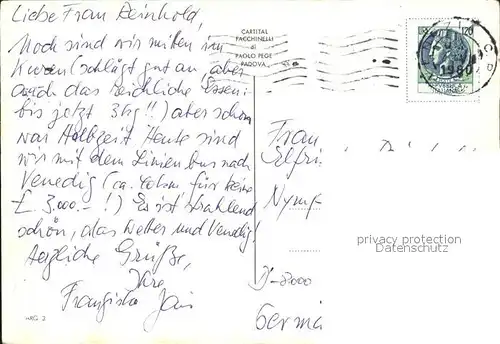 Liebe Frau Reinhold,
Noch sind wir mitten im
Kuren (schlägt gut an, aber
auch das reichliche Essen:
bis jetzt 3kg!!) aber schon
war Halbzeit. Heute sind
wir mit dem Linienbus nach
Venedig (ca. 60km für keine
£. 3.000.- !) Es ist strahlend
schön, das Wetter und Venedig!
Herzliche Grüße,
Ihre
Franziska
WG 3
CARTITAL
FACCHINELLI
di
PAOLO PEGE
PADOVA
120
1980
Frau
Elfri
Nymp
D-8000
Germa
privacy protection
Datenschutz